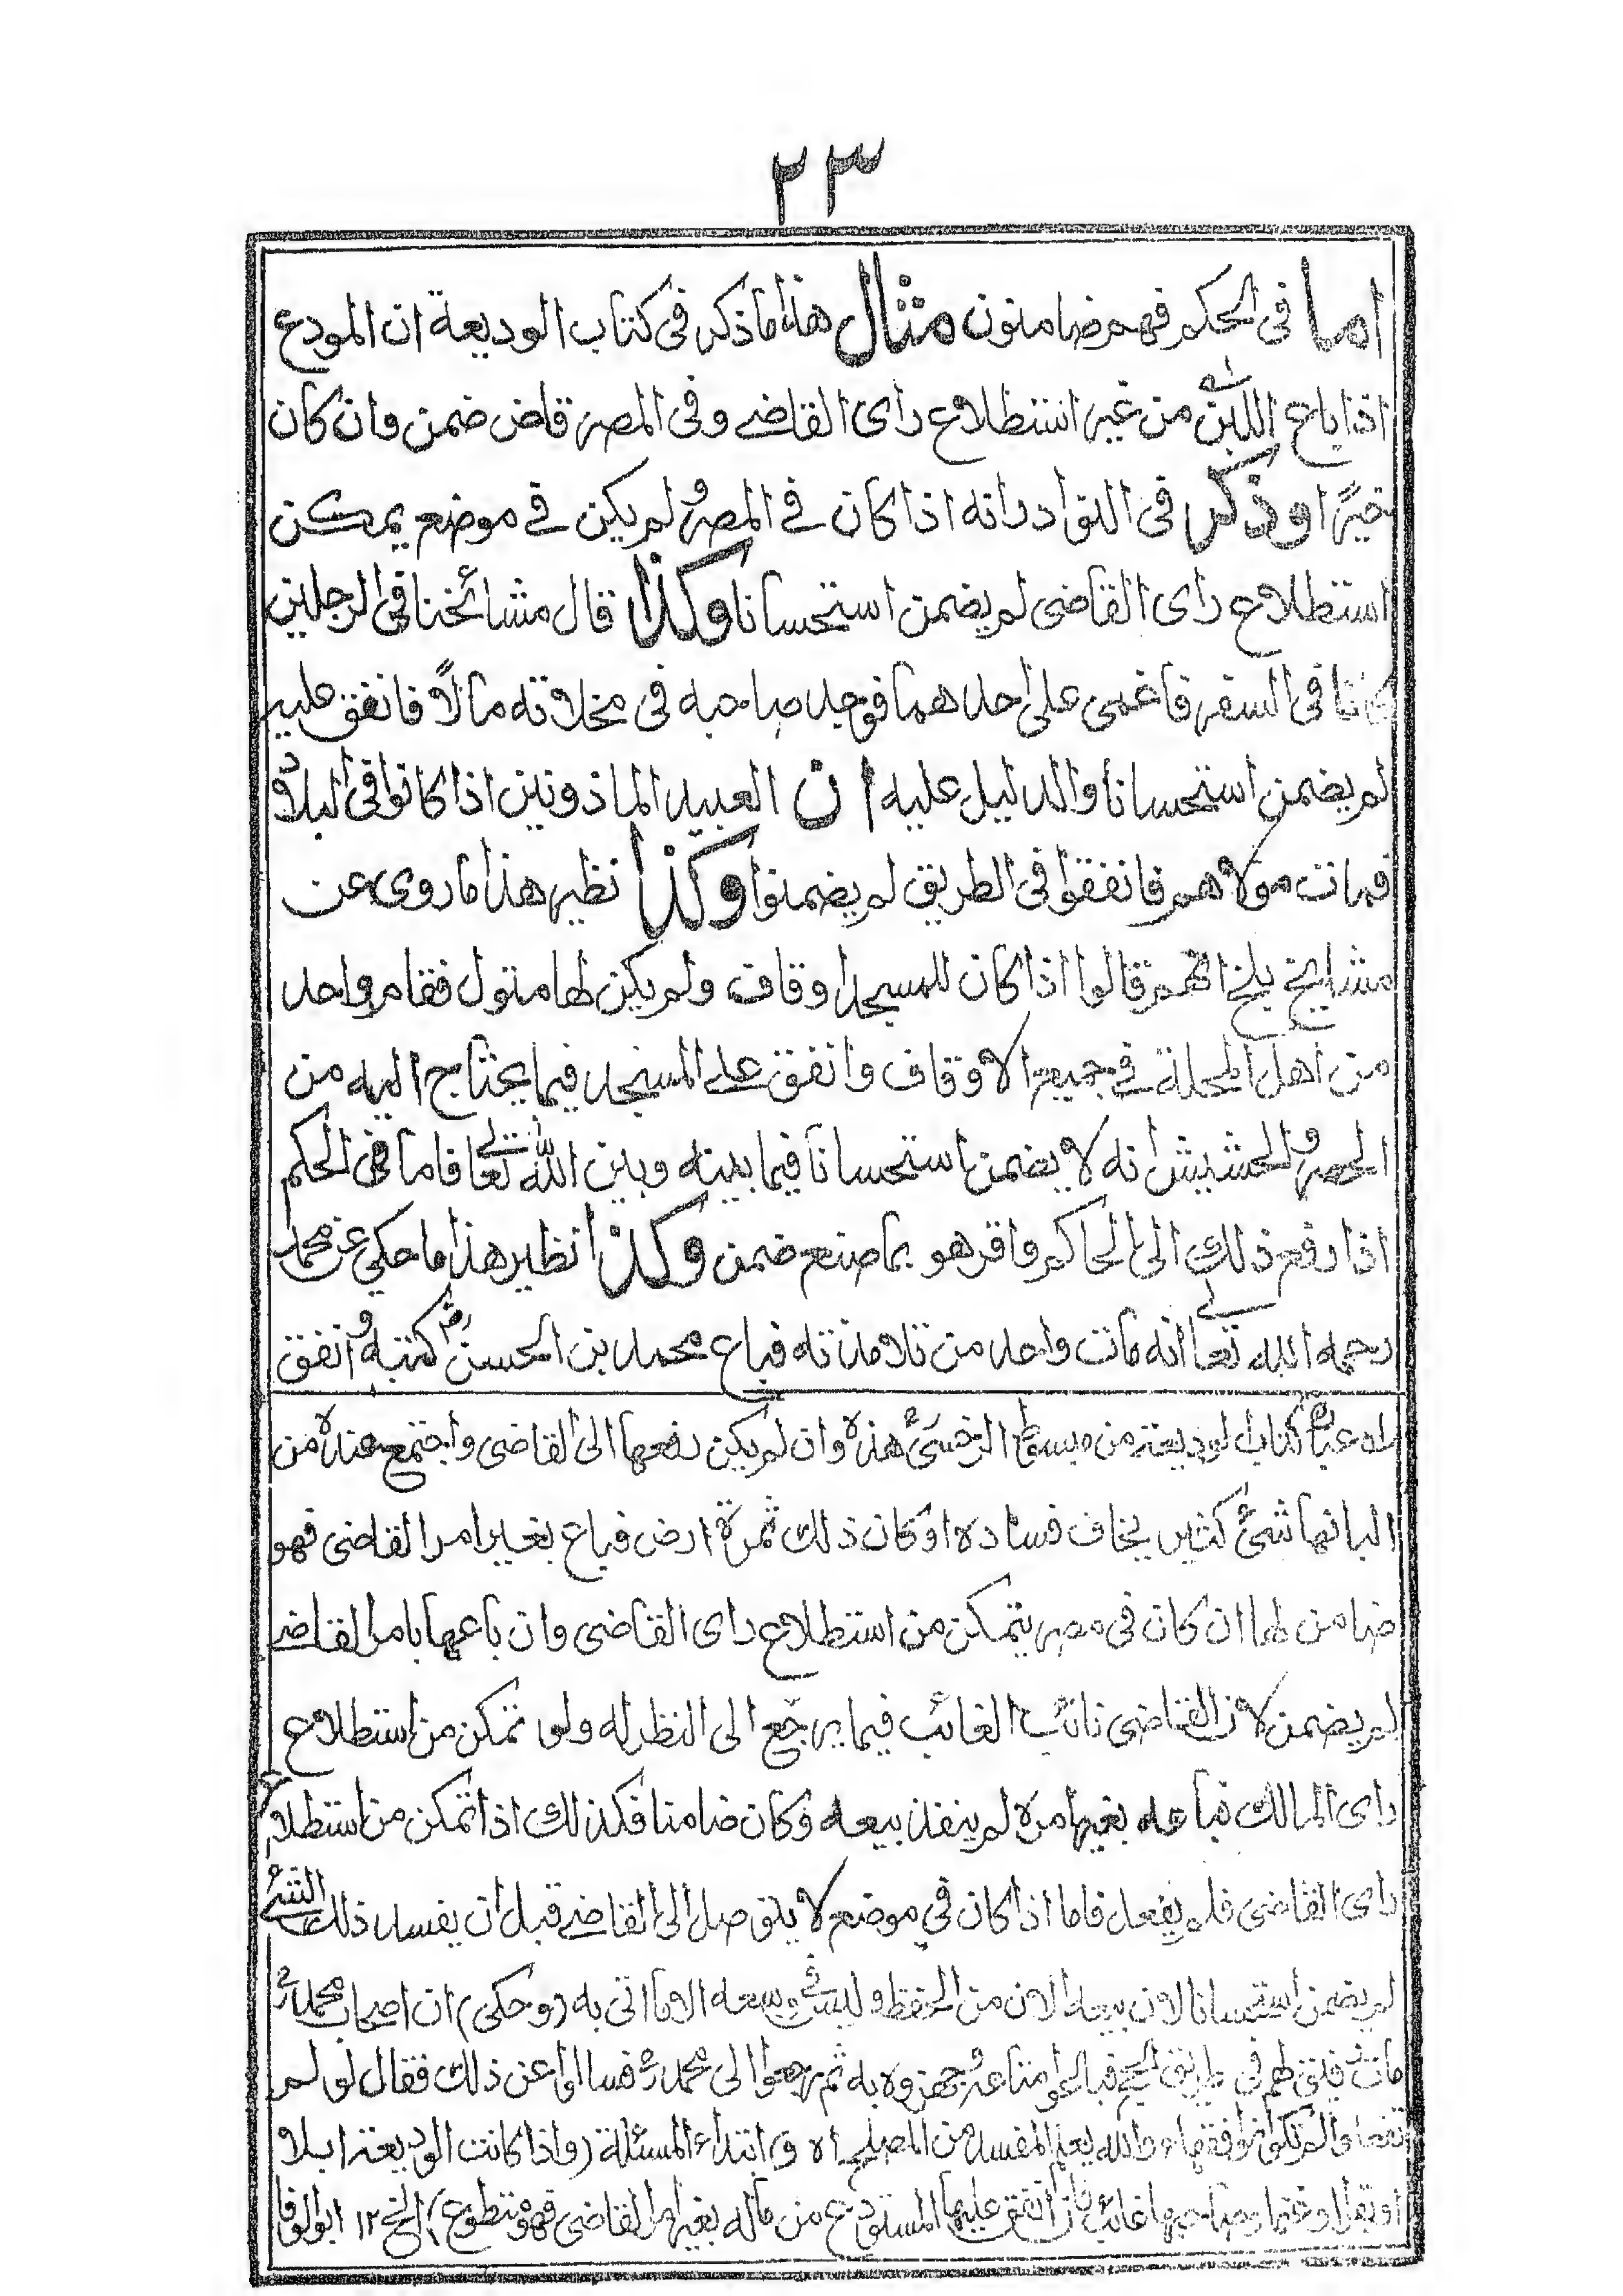 ٢٣
اما فى الحكم فهم ضامنون مثال هذا ما ذكر فى كتاب الوديعة ان المودع
اذا باع اللبن من غير استطلاع راى القاضے وفى المصر قاض ضمن وان كان
خيرًا وذكر فى النوادر انه اذا كان فے المصر ولم يكن فے موضع يمكن
استطلاع راى القاضى لم يضمن استحسانا وكذا قال مشائخنا فى الرجلين
كانا فى السفر فاغمى على احدهما فوجد صاحبه فى مخلاته مالًا فانفق عليه
لم يضمن استحسانا والدليل عليه ان العبيد الماذونين اذا كانوا فى البلاد
فمات مولاهم فانفقوا فى الطريق لم يضمنوا وكذا نظير هذا ما روى عن
مشايخ بلخ انهم قالوا اذا كان للمسجد اوقاف ولم يكن لها متول فقام واحد
من اهل المحلة فے جميع الاوقاف وانفق علے المسجد فيما يحتاج اليه من
الحصر والحشيش انه لا يضمن استحسانا فيما بينه وبين الله تعالے فاما فى الحكم
اذا رفع ذلك الى الحاكم واقر هو بما صنع ضمن وكذا نظير هذا ما حكى عن محمد
رحمه الله تعالے انه مات واحد من تلامذته فباع محمد بن الحسن رح كتبه وانفق
له عبارة كتاب الوديعة من مبسوط السرخسى هذه وان لم يكن دفعها الى القاضى واجتمع عنده من
البانها شئ كثير يخاف فساده او كان ذلك ثمرة ارض فباع بغير امر القاضى فهو
ضامن لها ان كان فى مصر يتمكن من استطلاع راى القاضى وان باعها بامر القاضے
لم يضمن لان القاضى نائب الغائب فيما يرجع الى النظر له ولو تمكن من استطلاع
راى المالك فباعه بغير امره لم ينفذ بيعه وكان ضامنا فكذلك اذا تمكن من استطلاع
راى القاضى فلم يفعل فاما اذا كان فى موضع لا يتوصل الى القاضے قبل ان يفسد ذلك الشئ
لم يضمن استحسانا لان بيعه الان من الحفظ وليس فى وسعه الا ما اتى به (وحكى) ان اصحاب محمد رح
مات رفيق لهم فى طريق الحج فباعوا متاعه وجهزوه به ثم رجعوا الى محمد رح فسالوا عن ذلك فقال لو لم
تفعلوا لم تكونوا فقهاء والله يعلم المفسد من المصلح اه وابتداء المسئلة (واذا كانت الوديعة ابلا
او بقرا او غنما وصاحبها غائب فان انفق عليها المستودع من ماله بغير امر القاضى فهو متطوع) الخ ١٢ ابو الوفا